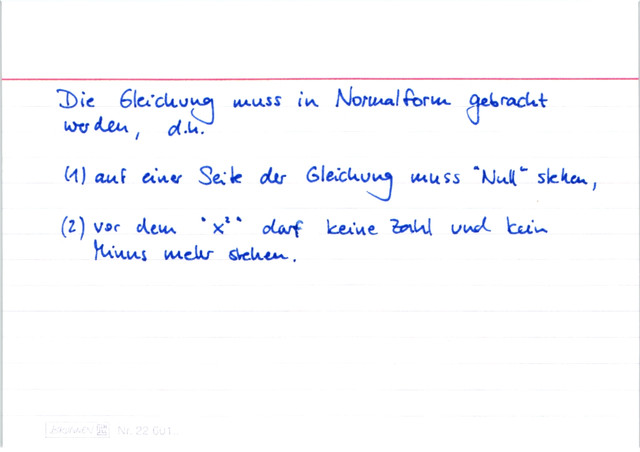 Die Gleichung muss in Normalform gebracht
werden, d.h.
(1) auf einer Seite der Gleichung muss "Null" stehen,
(2) vor dem "x²" darf keine Zahl und kein
Minus mehr stehen.
Nr. 22 601